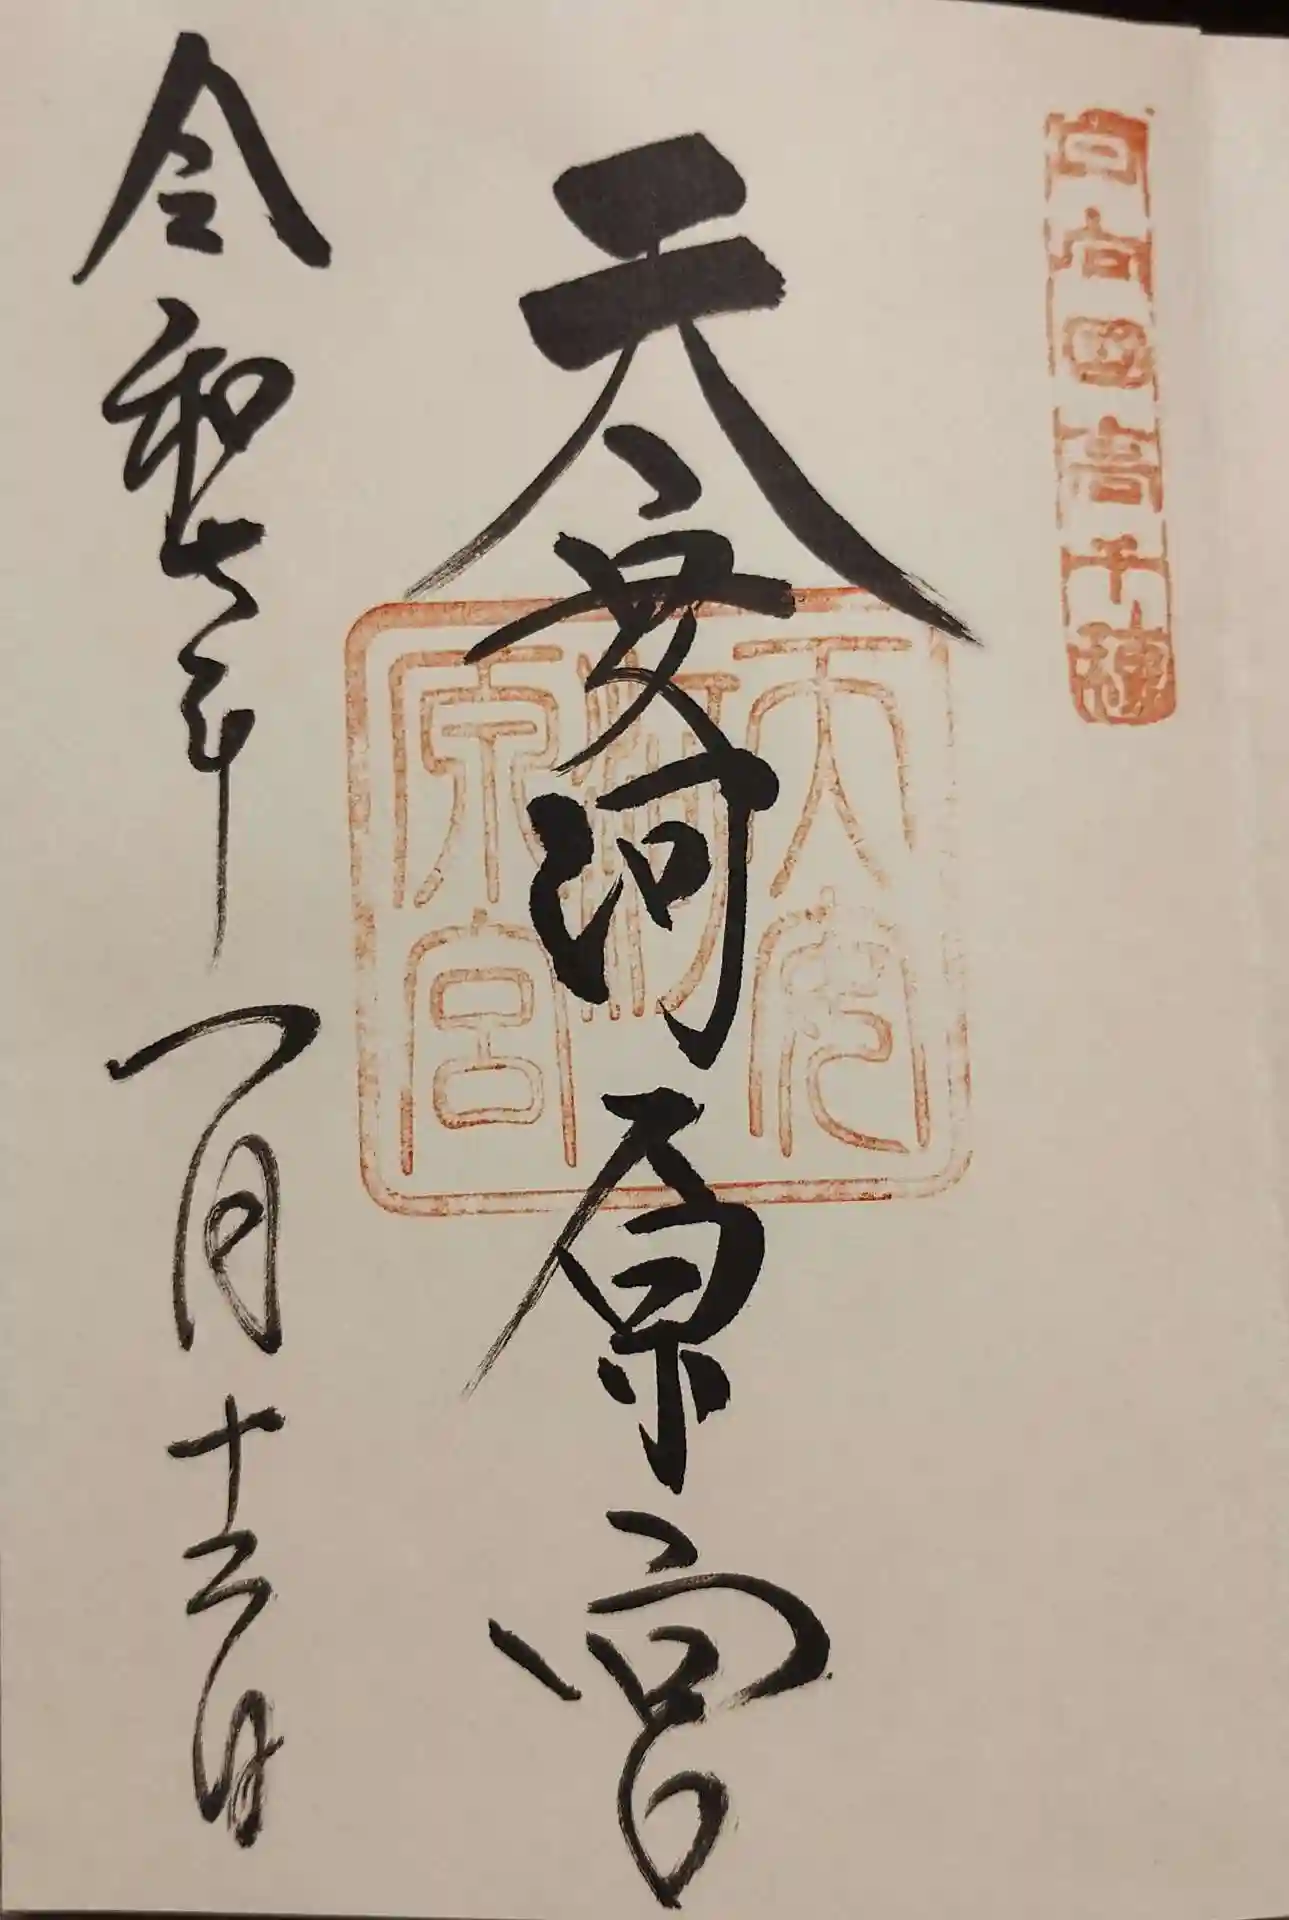 日向國高千穂
天安河原宮
天安河原宮
令和七年一月十二日